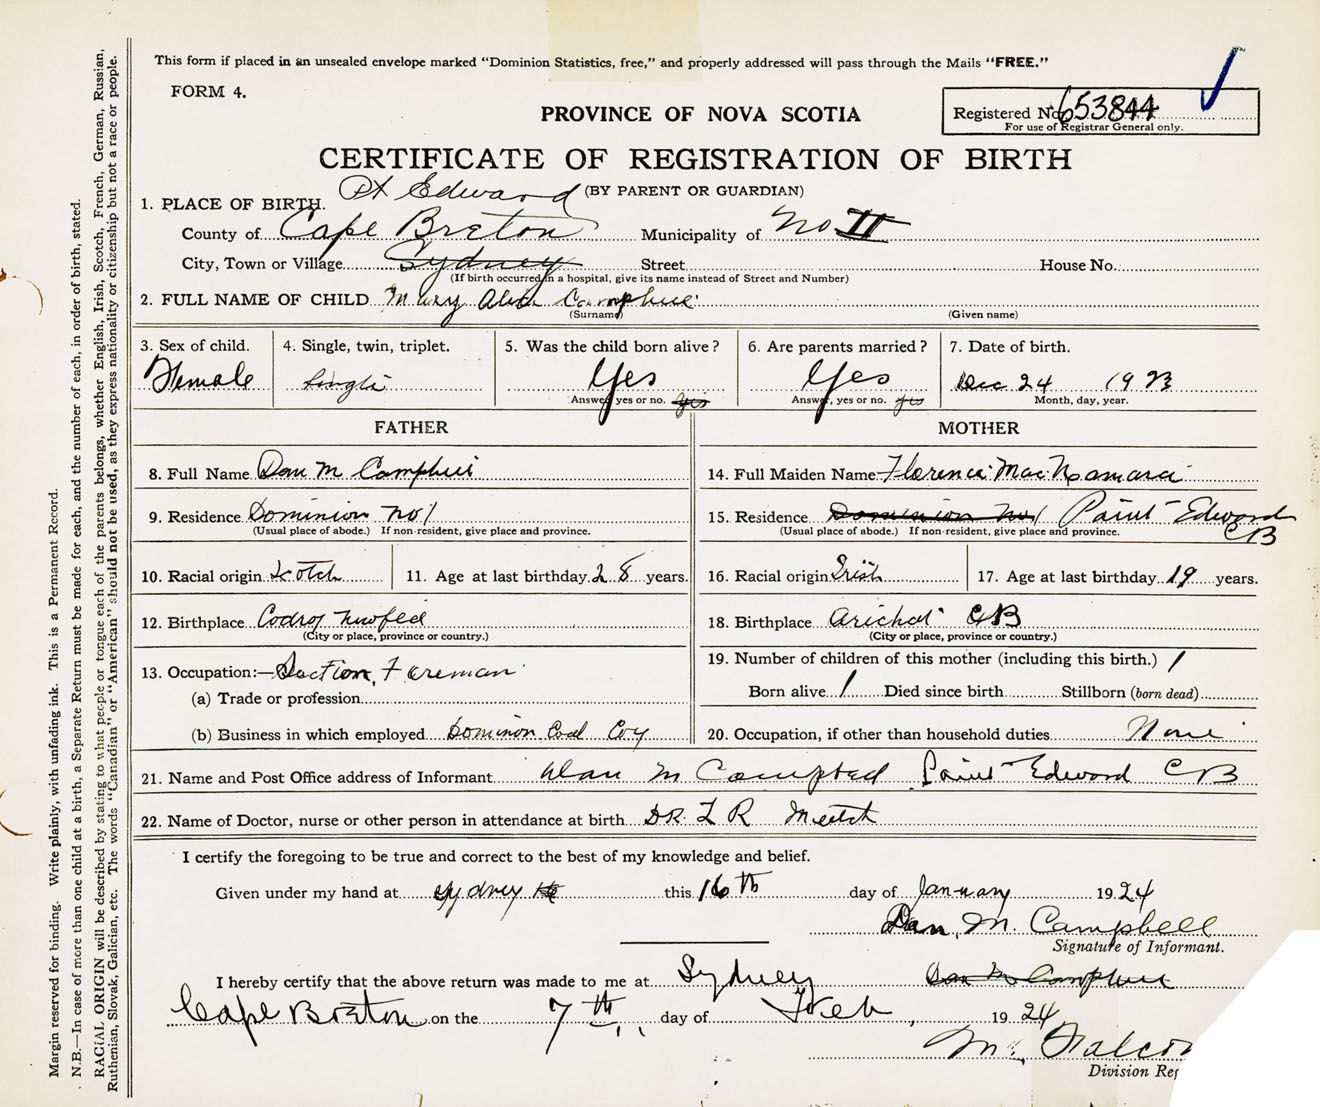 This form if placed in an unsealed envelope marked "Dominion Statistics, free," and properly addressed will pass through the Mails "FREE."
FORM 4.
PROVINCE OF NOVA SCOTIA
Registered No. 653844
For use of Registrar General only.
CERTIFICATE OF REGISTRATION OF BIRTH
(BY PARENT OR GUARDIAN)
1. PLACE OF BIRTH. Pt Edward
County of Cape Breton Municipality of No II
City, Town or Village Sydney Street House No.
(If birth occurred in a hospital, give its name instead of Street and Number)
2. FULL NAME OF CHILD Mary
(Surname) (Given name)
3. Sex of child. 4. Single, twin, triplet. 5. Was the child born alive? 6. Are parents married? 7. Date of birth.
Female Single Yes Yes Dec 24 1923
Answer, yes or no. yes Answer, yes or no. yes Month, day, year.
FATHER MOTHER
8. Full Name Dan M 14. Full Maiden Name Florence MacNamara
9. Residence Dominion No 1 15. Residence Dominion No 1 Point Edward CB
(Usual place of abode.) If non-resident, give place and province. (Usual place of abode.) If non-resident, give place and province.
10. Racial origin Scotch 11. Age at last birthday 28 years. 16. Racial origin Irish 17. Age at last birthday 19 years.
12. Birthplace Codroy 18. Birthplace Arichat CB
(City or place, province or country.) (City or place, province or country.)
13. Occupation:— Section Foreman 19. Number of children of this mother (including this birth.) 1
(a) Trade or profession Born alive 1 Died since birth Stillborn (born dead)
(b) Business in which employed Dominion Coal Coy 20. Occupation, if other than household duties None
21. Name and Post Office address of Informant Dan M Campbell Point Edward CB
22. Name of Doctor, nurse or other person in attendance at birth DR. L R
I certify the foregoing to be true and correct to the best of my knowledge and belief.
Given under my hand at Sydney this 16th day of January 1924
Dan. M. Campbell
Signature of Informant.
I hereby certify that the above return was made to me at Sydney
Cape Breton on the 7th day of Feb 1924
Division Reg
Margin reserved for binding. Write plainly, with unfading ink. This is a Permanent Record.
N.B.—In case of more than one child at a birth, a Separate Return must be made for each, and the number of each, in order of birth, stated.
RACIAL ORIGIN will be described by stating to what people or tongue each of the parents belongs, whether English, Irish, Scotch, French, German, Russian,
Ruthenian, Slovak, Galician, etc. The words "Canadian" or "American" should not be used, as they express nationality or citizenship but not a race or people.